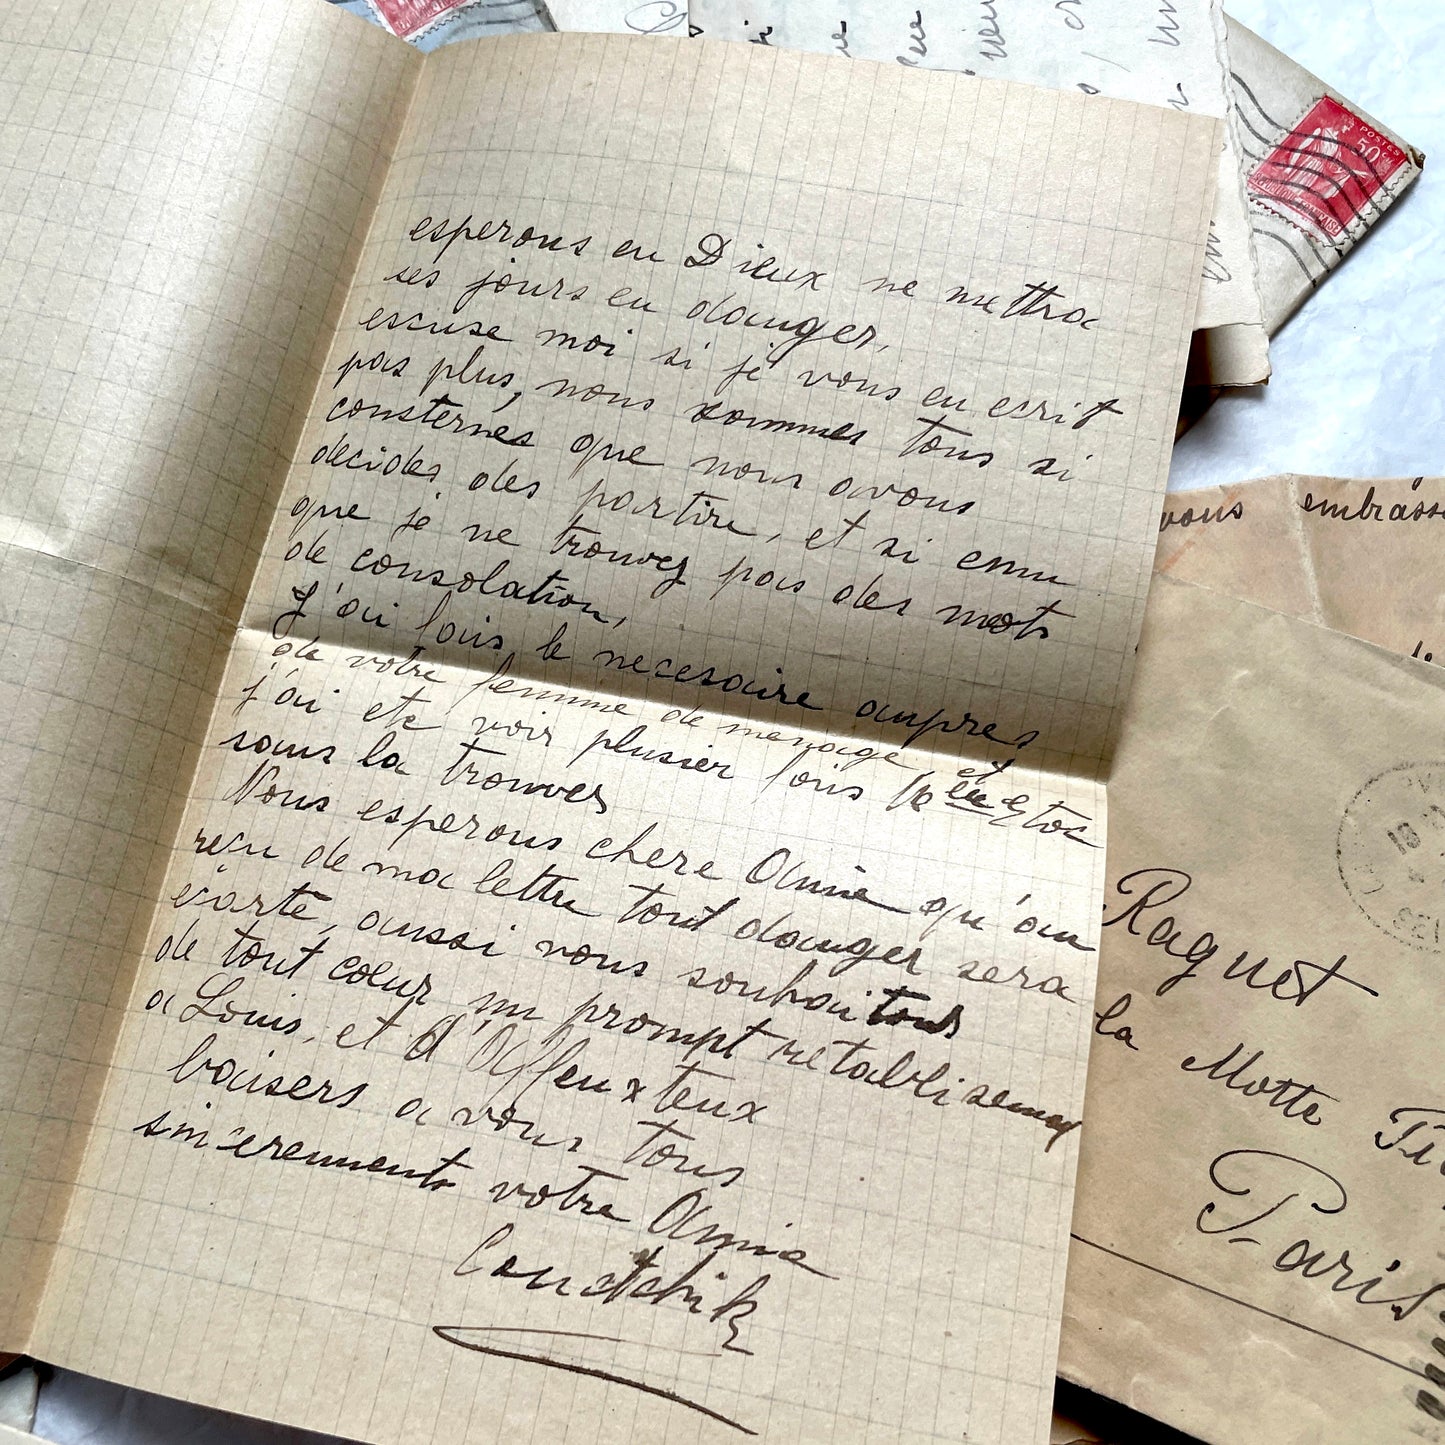 esperons en Dieux ne mettra
ses jours en danger,
escuse moi si je vous en ecrit
pas plus, nous sommes tous si
consternés que nous avons
decides des partire, et si ennu
que je ne trouvez pas des mots
de consolation,
J'ai fais le necesaire aupres
de votre femme de menage, et
j'ai ete voir plusier fois
sans la trouver
Nous esperons chere Amie qu'au
reçu de ma lettre tout danger sera
écarte, aussi vous souhaitons
de tout cœur un prompt retablisement
a Louis, et d'Affeuxteux
baisers a vous tous
sincerement votre Amie
vous embrasse
Raguet
la Motte
Paris
POSTES
50c
REPUBLIQUE FRANÇAISE
19